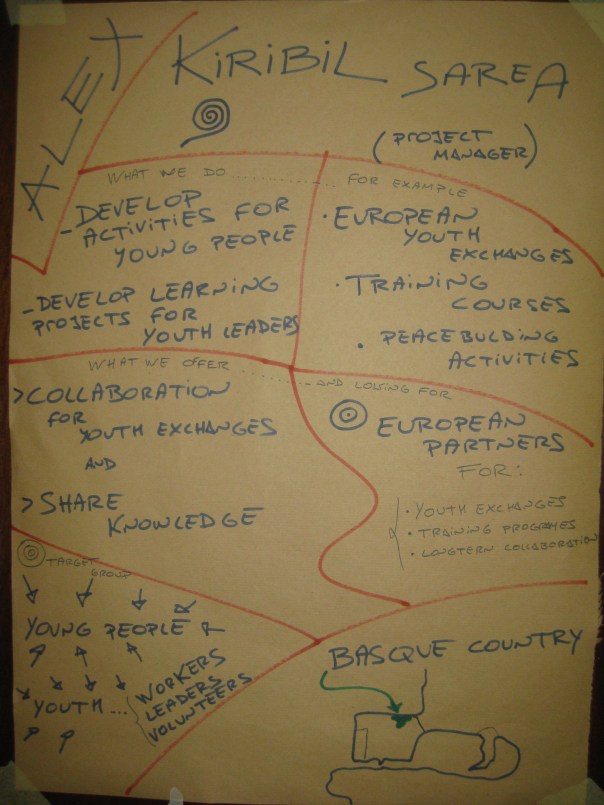 ALET
KIRIBIL SAREA
(PROJECT
MANAGER)
WHAT WE DO .................. FOR EXAMPLE
- DEVELOP
ACTIVITIES FOR
YOUNG PEOPLE
- DEVELOP LEARNING
PROJECTS FOR
YOUTH LEADERS
· EUROPEAN
YOUTH
EXCHANGES
· TRAINING
COURSES
· PEACEBULDING
ACTIVITIES
WHAT WE OFFER ............ AND LOOING FOR
> COLLABORATION
FOR
YOUTH EXCHANGES
AND
> SHARE
KNOWLEDGE
EUROPEAN
PARTNERS
FOR:
· YOUTH EXCHANGES
· TRAINING PROGRAMES
· LONGTERN COLLABORATION
TARGET
GROUP
YOUNG PEOPLE
YOUTH ...
WORKERS
LEADERS
VOLUNTEERS
BASQUE COUNTRY